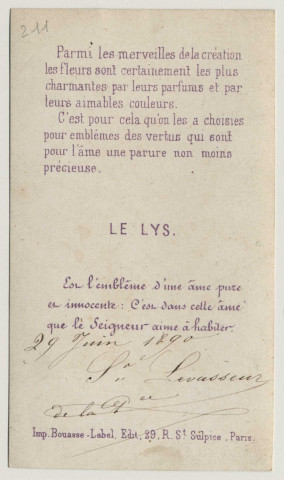 211
Parmi les merveilles de la création
les fleurs sont certainement les plus
charmantes par leurs parfums et par
leurs aimables couleurs.
C'est pour cela qu'on les a choisies
pour emblêmes des vertus qui sont
pour l'âme une parure non moins
précieuse.
LE LYS.
Est l'emblême d'une âme pure
et innocente: C'est dans cette âme
que le Seigneur aime à habiter.
29 Juin 1890
Levasseur
de la
Imp. Bouasse-Lebel, Edit, 29, R. St Sulpice, Paris.